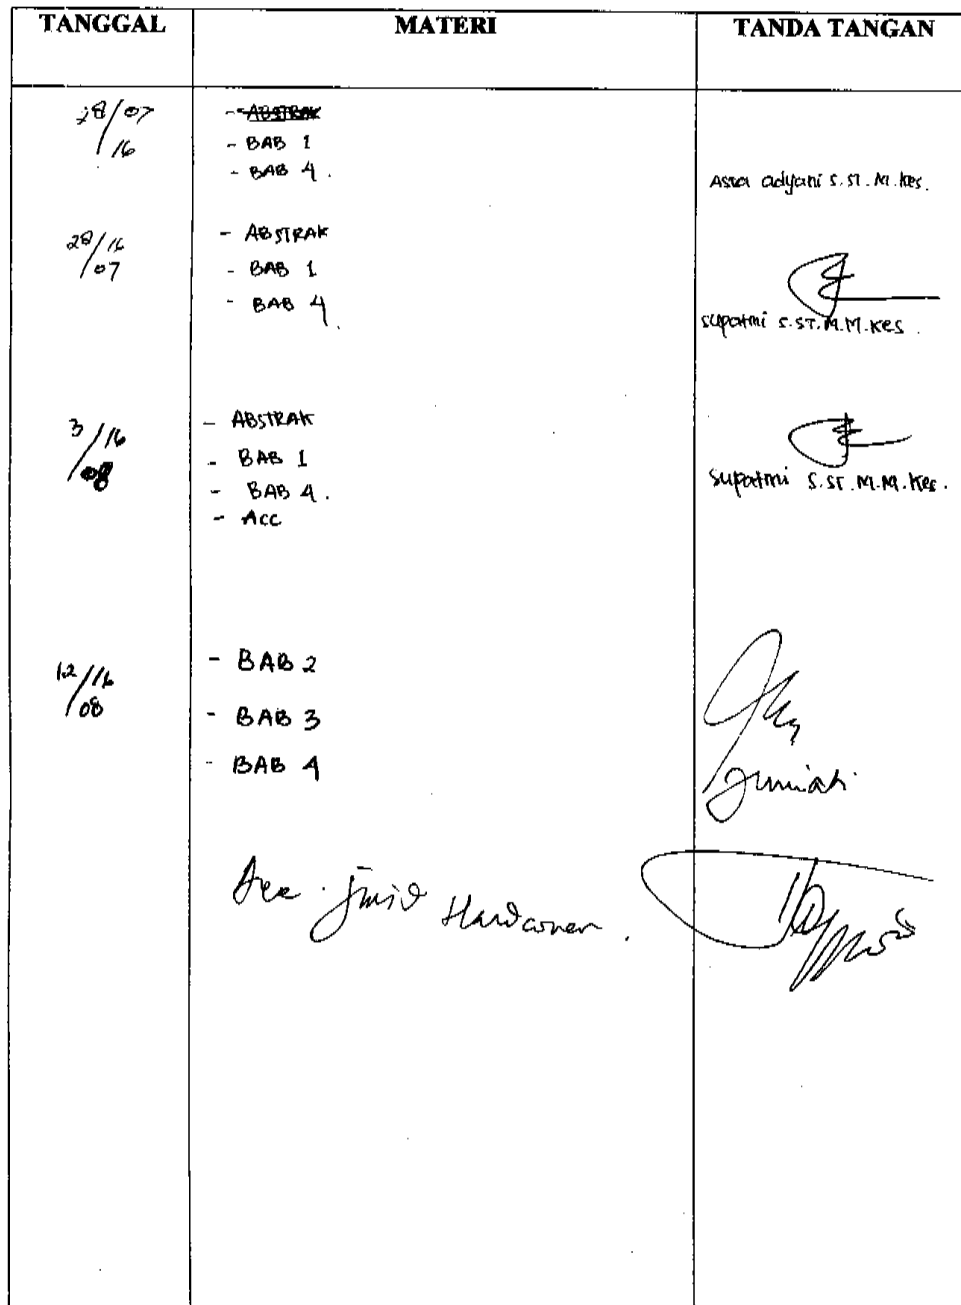 TANGGAL MATERI TANDA TANGAN
28/07 - ABSTRAK
16 - BAB 1
- BAB 4.
adyani S.ST.M.Kes.
28/16 - ABSTRAK
07 - BAB 1
- BAB 4.
Supatmi S.ST.M.M.Kes.
3/16 - ABSTRAK
08 - BAB 1
- BAB 4.
Supatmi S.ST.M.M.Kes.
- Acc
12/16 - BAB 2
08 - BAB 3
- BAB 4
Juniati
Acc Hardcover.